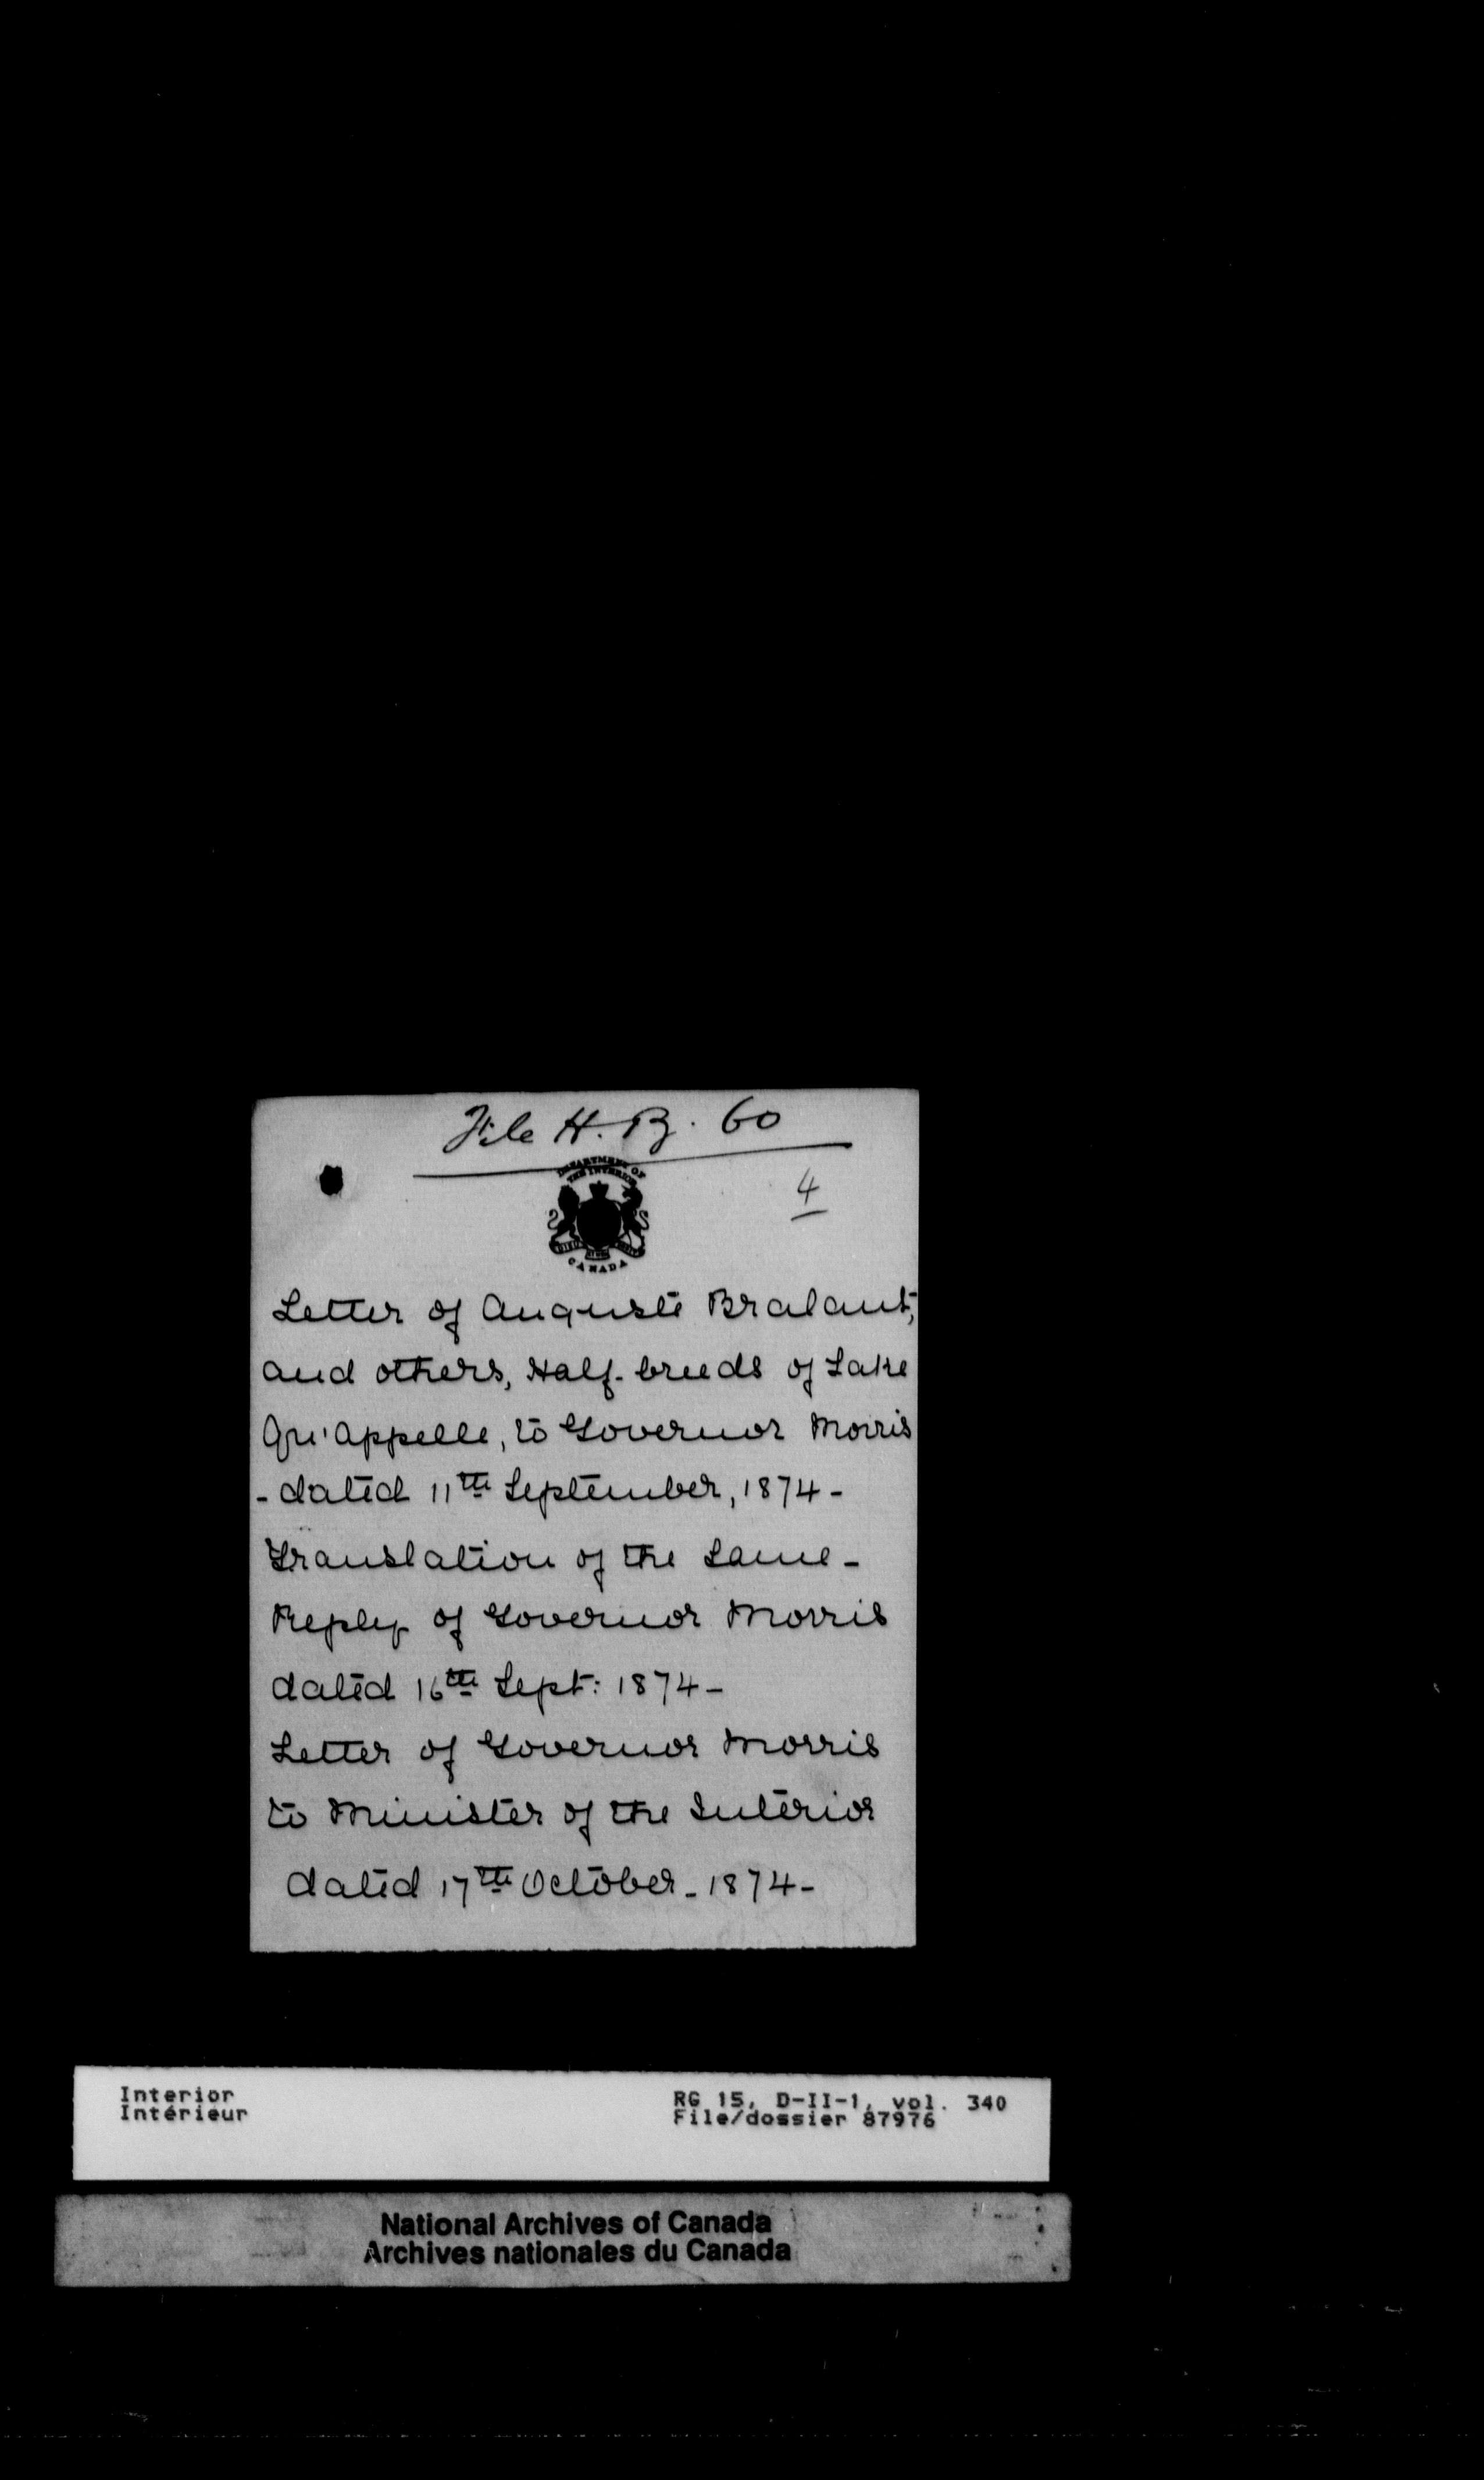 File H.B. 60
4
DEPARTMENT OF
THE INTERIOR
CANADA
Letter of Auguste Bralant,
and others, Half-breeds of Lake
Qu'Appelle, to Governor Morris
- dated 11th September, 1874 -
Translation of the same -
Reply of Governor Morris
dated 16th Sept: 1874 -
Letter of Governor Morris
to Minister of the Interior
dated 17th October - 1874 -
Interior
Intérieur
RG 15, D-II-1, vol. 340
File/dossier 87976
National Archives of Canada
Archives nationales du Canada